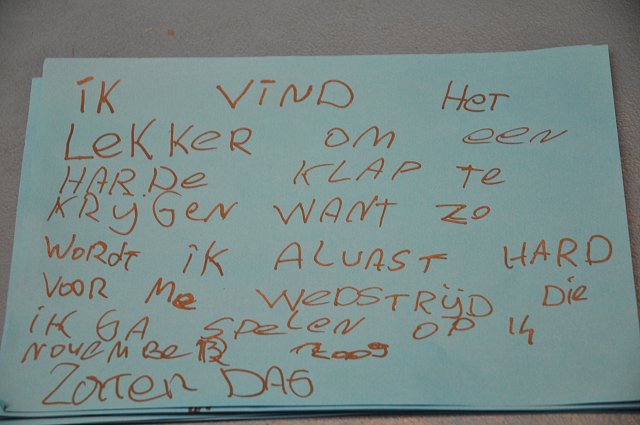 iK VIND HeT
LeKKeR OM een
HARDe KLAP Te
KRyGeN WANT ZO
WORDT iK ALVAST HARD
VOOR Me WeDSTRijD Die
iK GA SPeLeN OP 14
NOVeMBeR 2009
ZOTTeN DAG